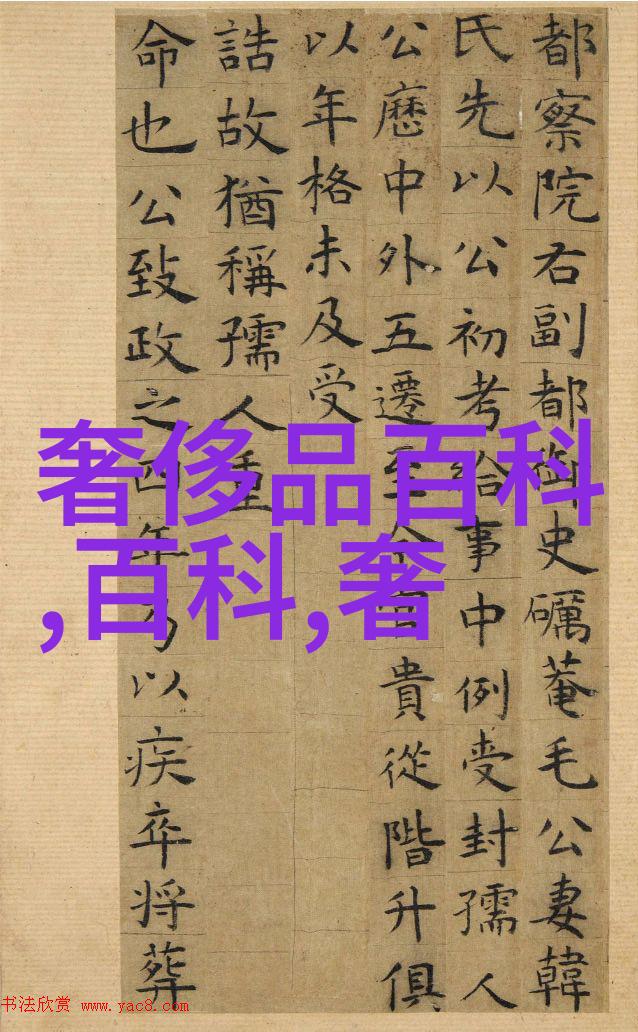 都察院右副都御史礪菴毛公妻韓
氏先以公初考給事中例受封孺人
公歷中外五遷至今官貴從階升俱
以年格未及受
誥故猶稱孺人重
命也公致政之四年乃以疾卒将葬
奢侈品百科
,百科,奢
书法欣赏 www.yac8.com